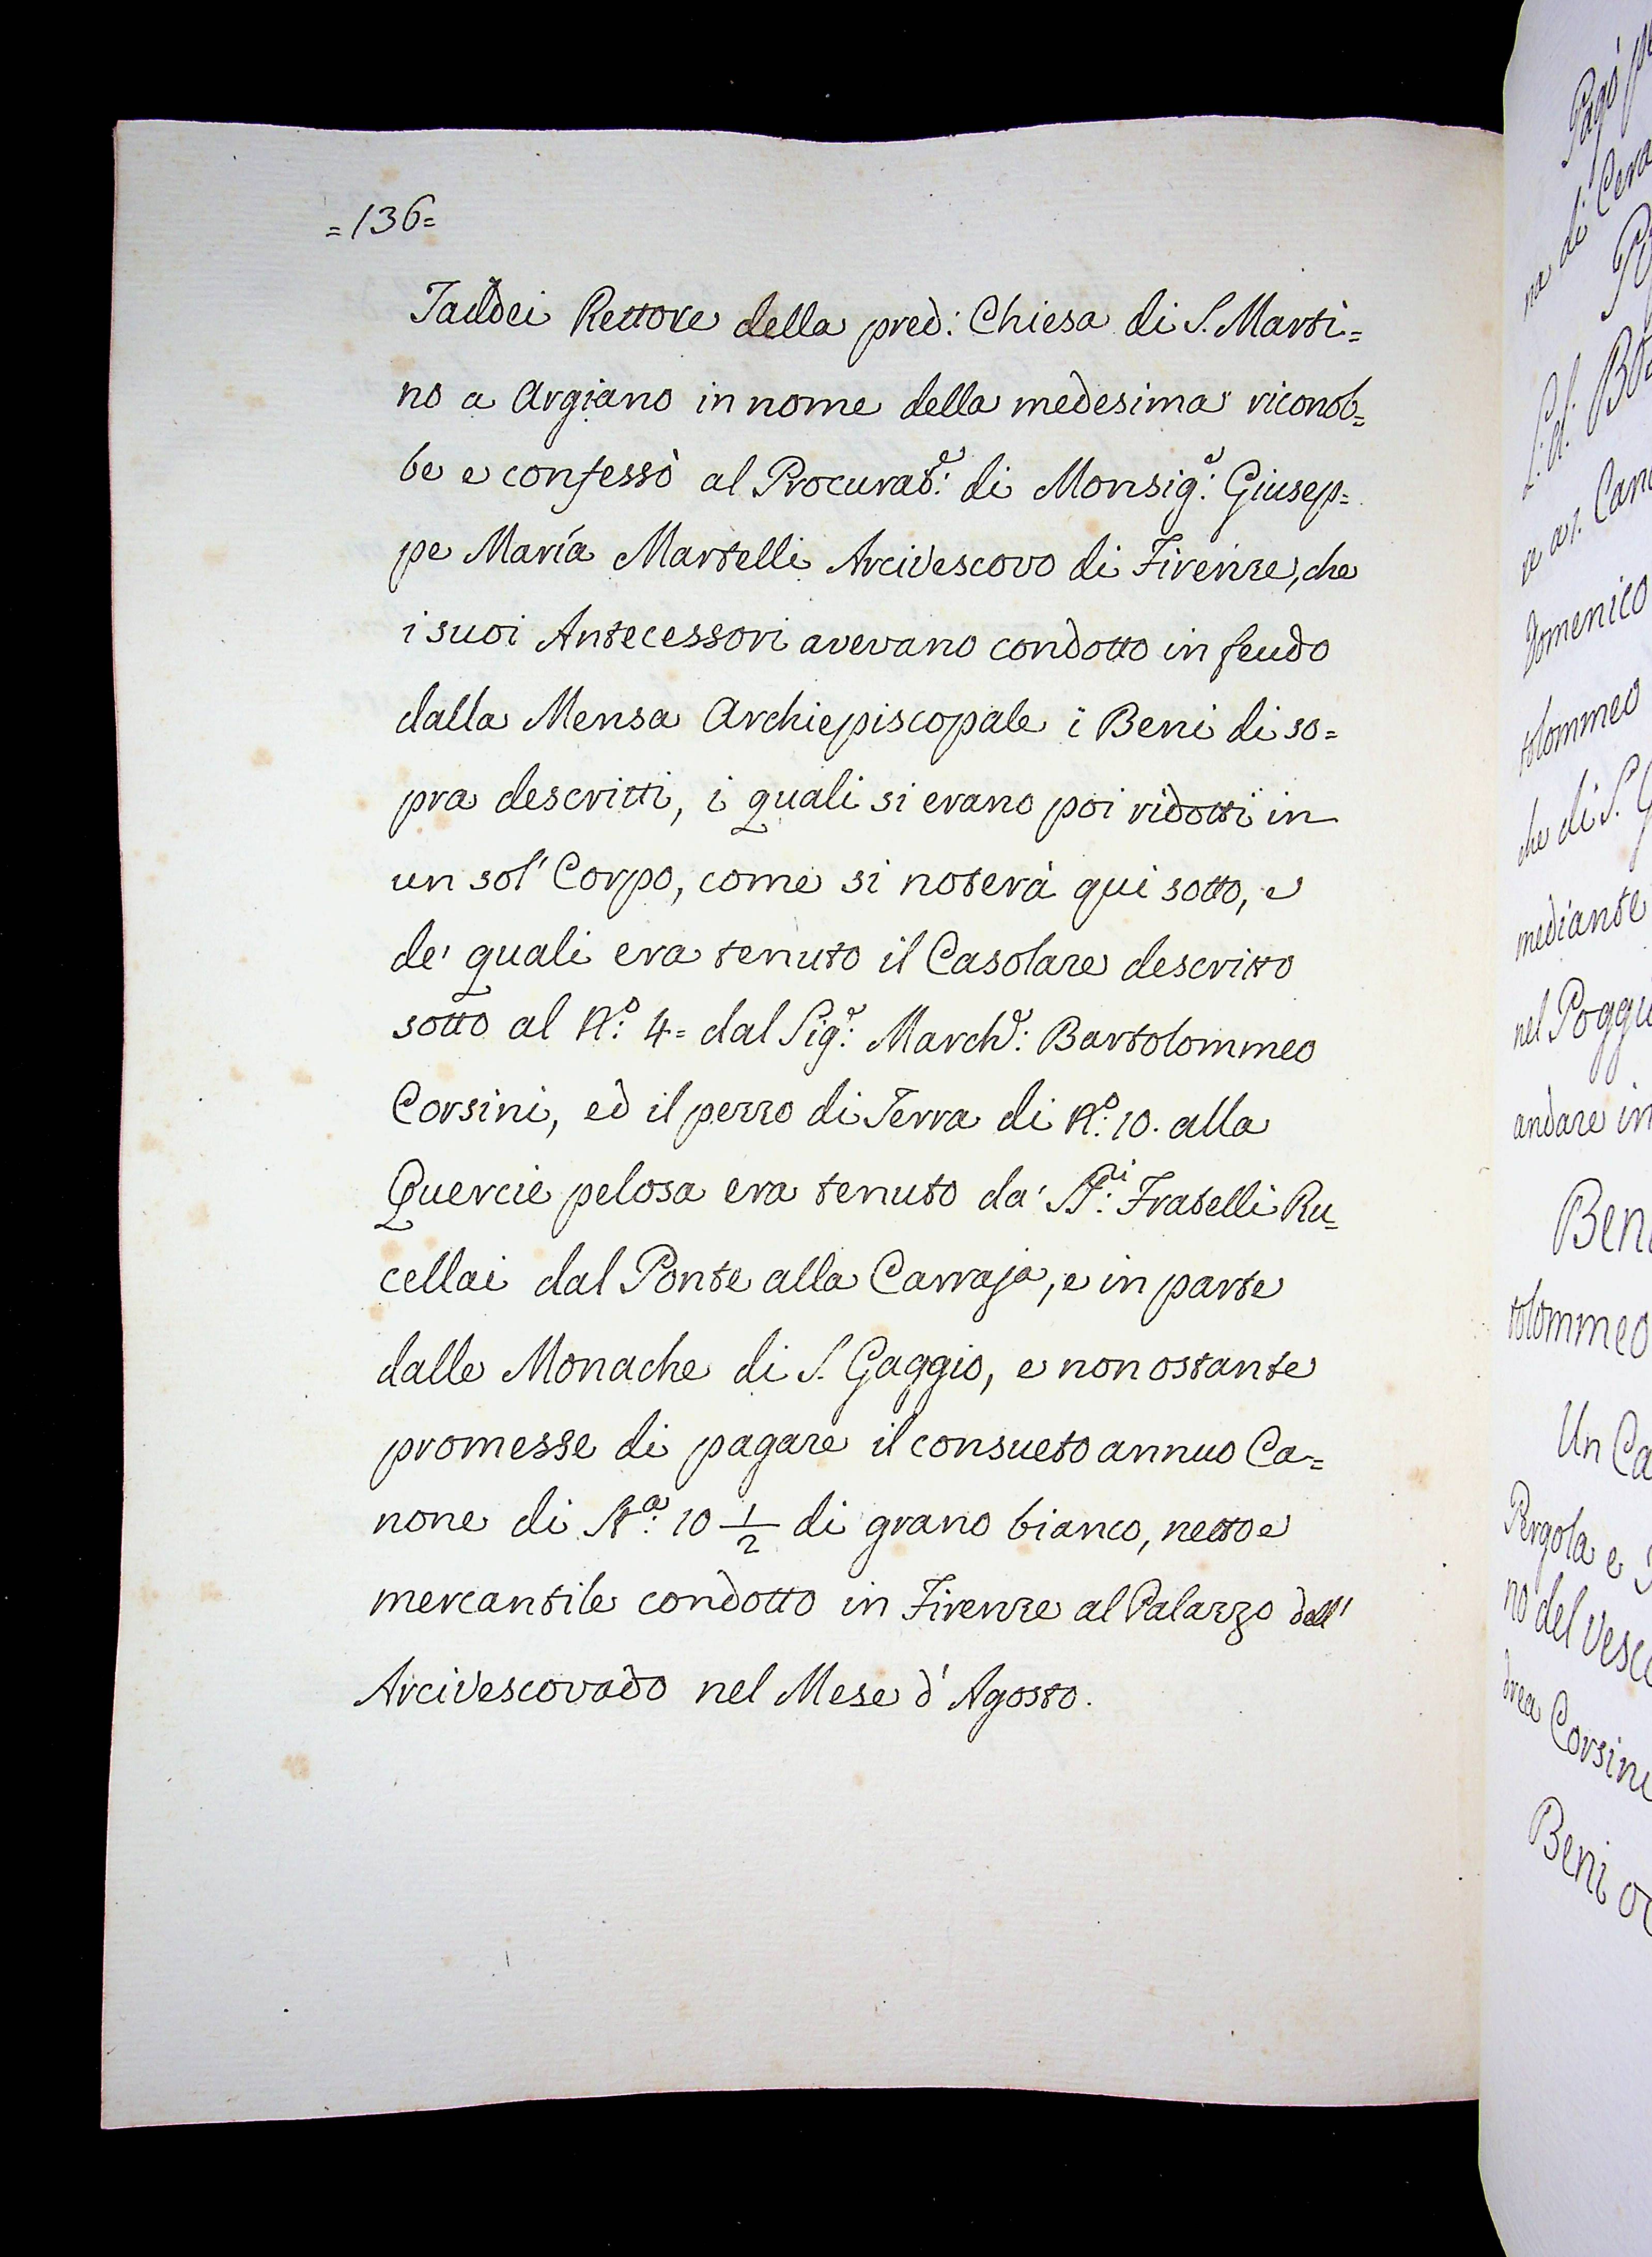 =136=
Taddei Rettore della pred: Chiesa di S. Marti=
no a Argiano in nome della medesima riconob=
be e confessò al Procurat.e: di Monsig.e: Giusep=
pe María Martelli Arcivescovo di Firenze, che
i suoi Antecessori avevano condotto in feudo
dalla Mensa Archiepiscopale i Beni di so=
pra descritti, i quali si erano poi ridotti in
un sol' Corpo, come si noterà qui sotto, e
de' quali era tenuto il Casolare descritto
sotto al N.o: 4= dal Sig.e: March.e: Bartolommeo
Corsini, ed il pezzo di Terra di N.o: 10. alla
Quercie pelosa era tenuto da' SS.ri: Fratelli Ru=
cellai dal Ponte alla Carraja, e in parte
dalle Monache di S. Gaggio, e non ostante
promesse di pagare il consueto annuo Ca=
none di St.a: 10 1/2 di grano bianco, netto e
mercantile condotto in Firenze al Palazzo dell'
Arcivescovado nel Mese d' Agosto.
Pagò
na di Cera
Domenico
tolommeo
che di S.
mediante
nel Poggi
andare in
Beni
tolommeo
Un Ca
Pergola e
no del Vesco
drea Corsini
Beni